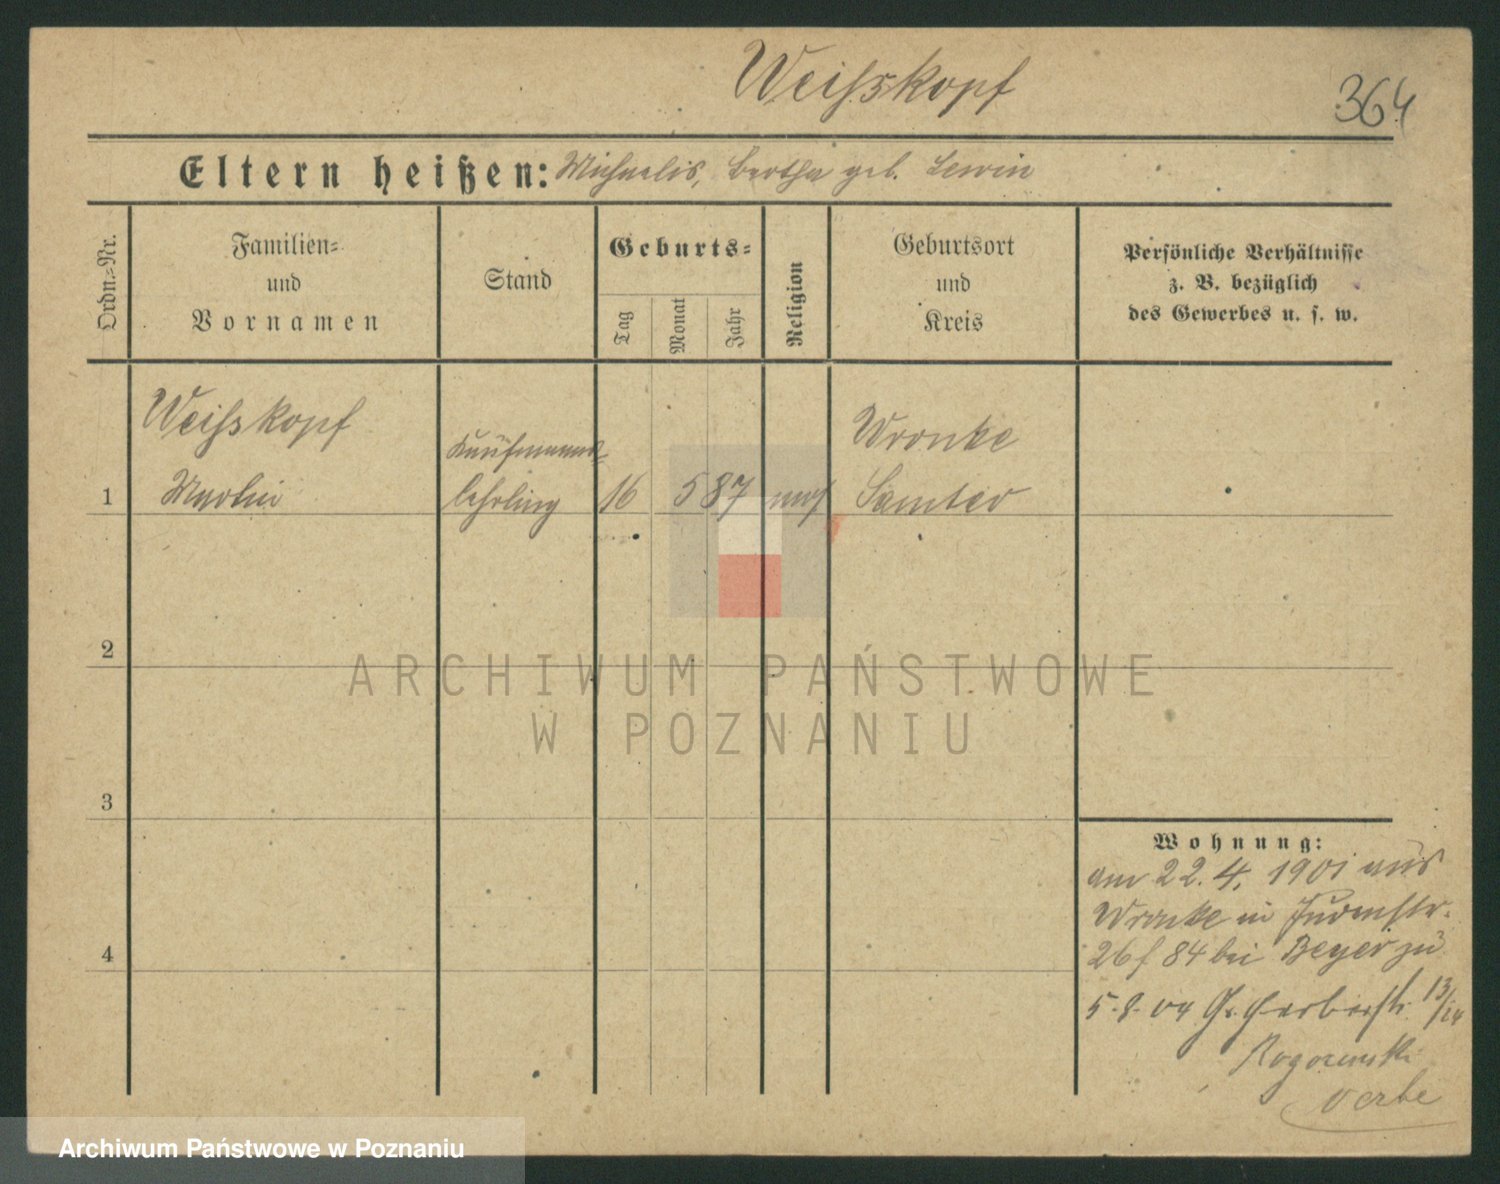 Weißkopf
364
Eltern heißen: Michaelis, Bertha geb. Lewin
Ordn.=Nr.
Familien=
und
Vornamen
Stand
Geburts=
Tag
Monat
Jahr
Religion
Geburtsort
und
Kreis
Persönliche Verhältnisse
z. B. bezüglich
des Gewerbes u. s. w.
Weißkopf
Martin
Kaufmanns=
lehrling
16
5
87
mos
Wronke
Samter
1
2
3
4
ARCHIWUM PAŃSTWOWE
W POZNANIU
Wohnung:
am 22.4. 1901 aus
Wronke in Judenstr.
26 f 84 bei Beyer zu
5.8.04 Gr. Gerberstr. 13/14
Rogozinski
Archiwum Państwowe w Poznaniu